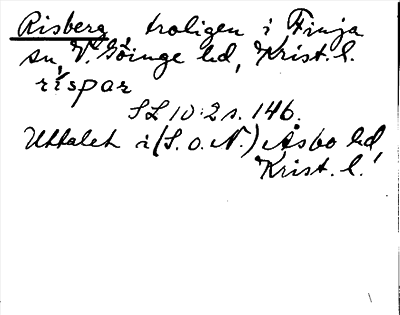 Risberg, troligen i Finja
sn, V. Göinge hd, Krist. l.
rispar
SL 10:2 s. 146.
Uttalet i (S. o. N.) Åsbo hd,
Krist. l.